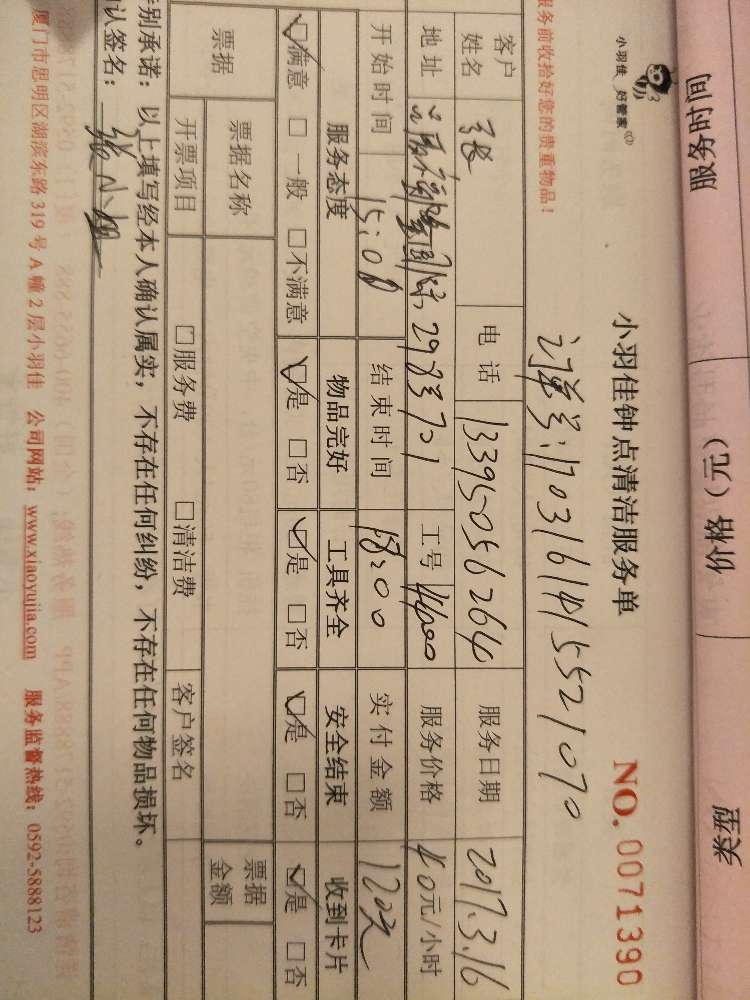 服务时间 价格（元） 类型
小羽佳 好管家
小羽佳钟点清洁服务单 NO. 0071390
服务前收拾好您的贵重物品！
订单号:17031611415521070
客户姓名 张 电话 13395056264 服务日期 2017.3.16
地址 298号701 工号 服务价格 40元/小时
开始时间 15:00 结束时间 18:00 实付金额 120元
服务态度 物品完好 工具齐全 安全结束 收到卡片
☑满意 □一般 □不满意 ☑是 □否 ☑是 □否 ☑是 □否 ☑是 □否
票据 票据名称 票据金额
开票项目 □服务费 □清洁费 客户签名
特别承诺：以上填写经本人确认属实，不存在任何纠纷，不存在任何物品损坏。
确认签名：张小
厦门市思明区湖滨东路 319 号 A 幢 2 层小羽佳 公司网站：www.xiaoyujia.com 服务监督热线：0592-5888123